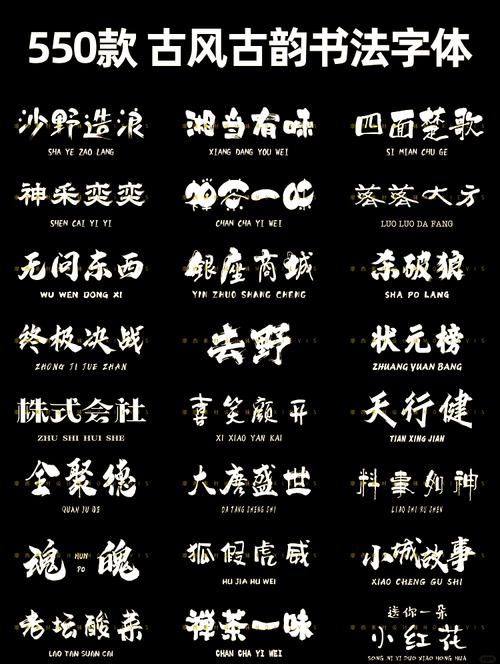 550款 古风古韵书法字体
沙野造浪 湘当有味 四面楚歌
SHA YE ZAO LANG XIANG DANG YOU WEI SI MIAN CHU GE
神采奕奕 禅茶一味 落落大方
SHEN CAI YI YI CHAN CHA YI WEI LUO LUO DA FANG
无问东西 银座商城 杀破狼
WU WEN DONG XI YIN ZHUO SHANG CHENG SHA PO LANG
终极决战 去野 状元榜
ZHONG JI JUE ZHAN ZHUANG YUAN BANG
株式会社 喜笑颜开 天行健
ZHU SHI HUI SHE XI XIAO YAN KAI TIAN XING JIAN
全聚德 大唐盛世 料事如神
QUAN JU DE DA TANG SHENG SHI LIAO SHI RU SHEN
魂 HUN PO 魄 狐假虎威 小城故事
HU JIA HU WEI XIAO CHENG GU SHI
老坛酸菜 禅茶一味 送你一朵
小红花
LAO TAN SUAN CAI CHAN CHA YI WEI SONG NI YI DUO XIAO HONG HUA